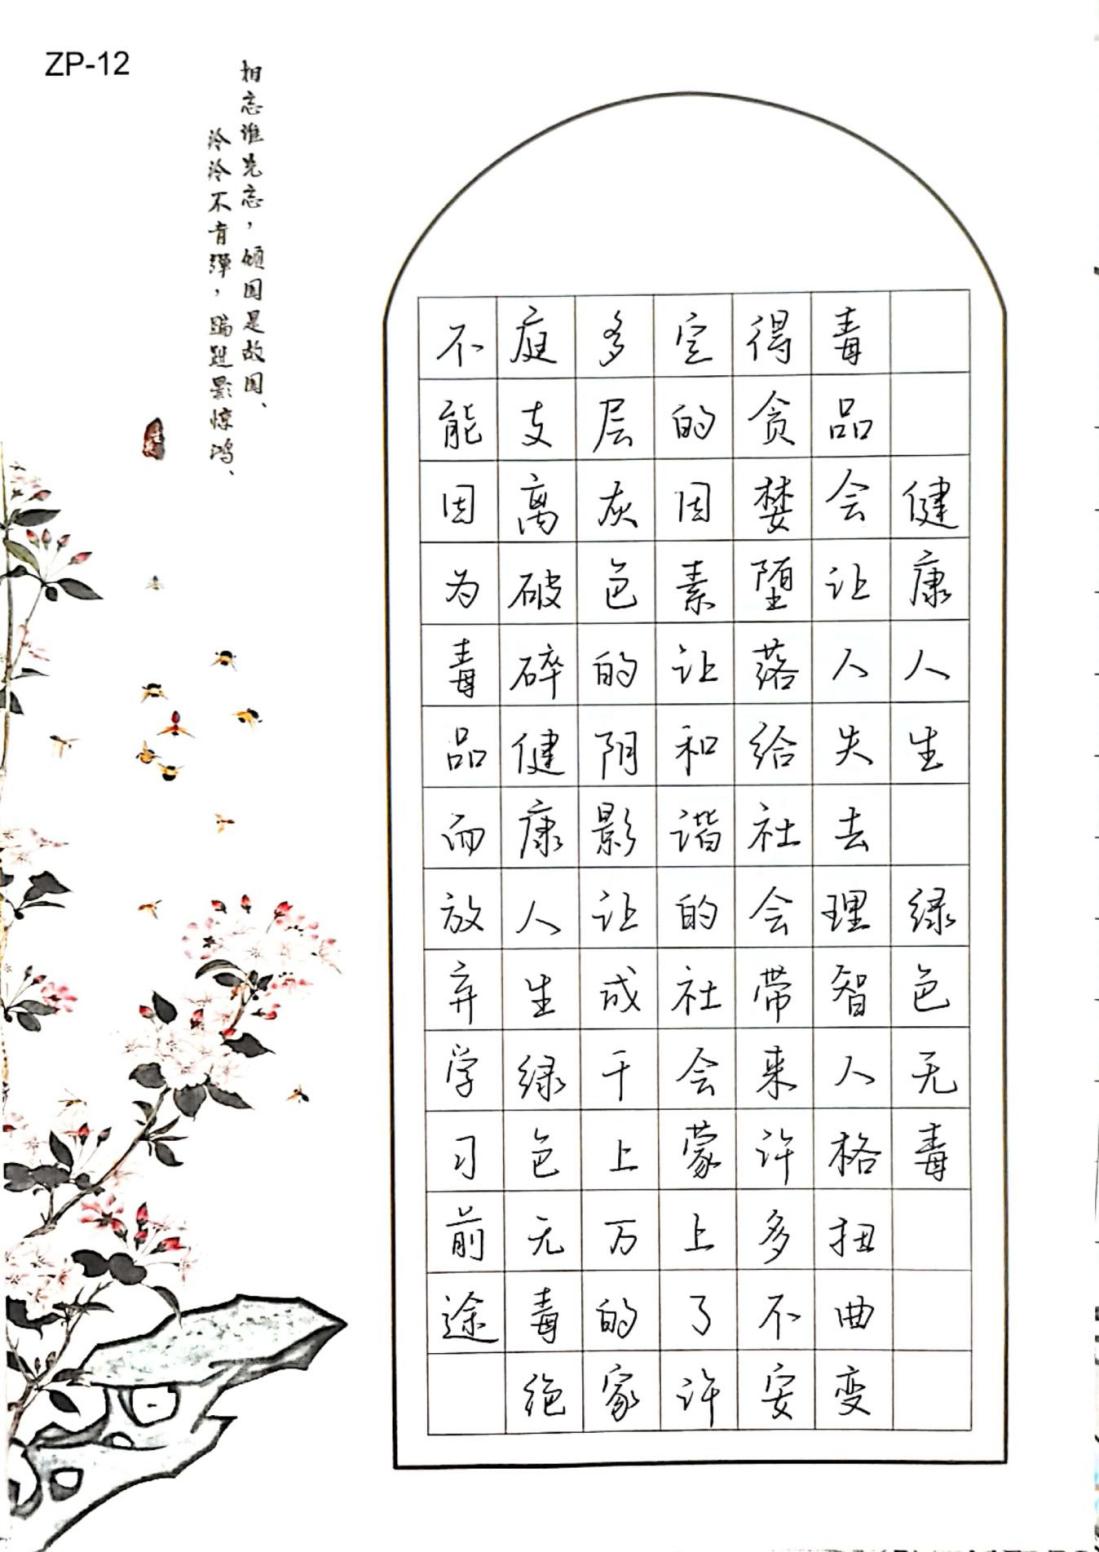 健康人生 绿色无毒
毒品会让人失去理智人格扭曲变
得贪婪堕落给社会带来许多不安
定的因素让和谐的社会蒙上了许
多层灰色的阴影让成千上万的家
庭支离破碎健康人生绿色无毒绝
不能因为毒品而放弃学习前途
相忘谁先忘，倾国是故国、
泠泠不肯弹，蹁跹影惊鸿、
ZP-12